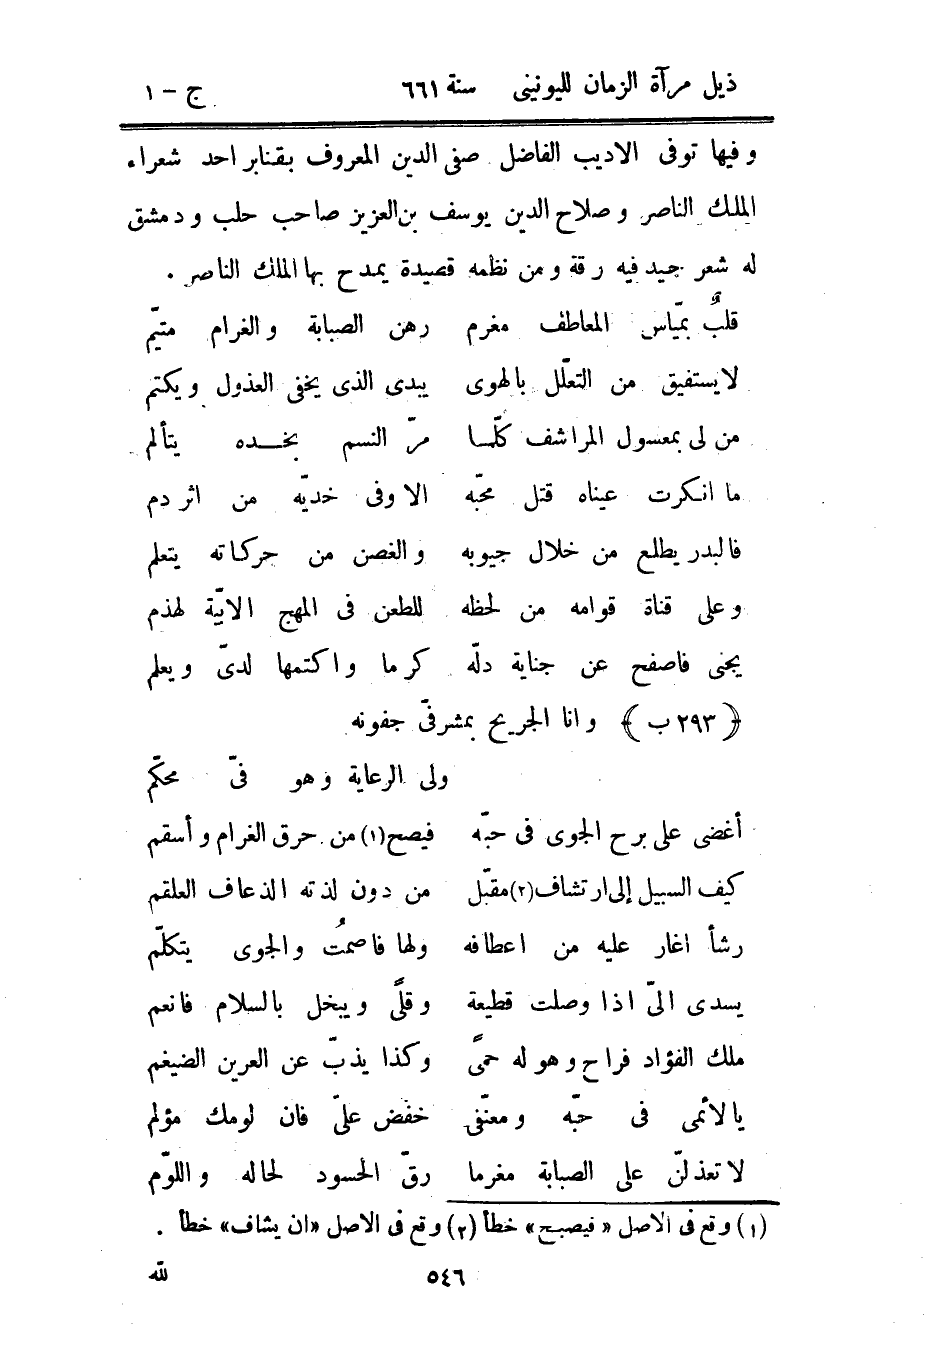 ذيل مرآة الزمان لليونينى سنة ٦٦١ ج - ١
وفيها توفى الاديب الفاضل صفى الدين المعروف بقنابر احد شعراء
الملك الناصر وصلاح الدين يوسف بن العزيز صاحب حلب ودمشق
له شعر جيد فيه رقة ومن نظمه قصيدة يمدح بها الملك الناصر .
قلبٌ بميّاس المعاطف مغرم رهن الصبابة والغرام متيّم
لايستفيق من التعلّل بالهوى يبدى الذى يخفى العذول ويكتم
من لى بمعسول المراشف كلّما مرّ النسم بخده يتألم
ما انكرت عيناه قتل محبّه الا وفى خديّه من اثر دم
فالبدر يطلع من خلال جيوبه والغصن من حركاته يتعلم
وعلى قناة قوامه من لحظه للطعن فى المهج الابيّة لهذم
يجنى فاصفح عن جناية دلّه كرما واكتمها لدىّ ويعلم
﴿ ٢٩٣ ب ﴾ وانا الجريح بمشرفىّ جفونه
ولى الرعاية وهو فىّ محكّم
أغضى على برح الجوى فى حبّه فيصح(١) من حرق الغرام وأسقم
كيف السبيل إلى ارتشاف(٢) مقبّل من دون لذته الذعاف العلقم
رشأ اغار عليه من اعطافه ولها فاصمتُ والجوى يتكلّم
يسدى الىّ اذا وصلت قطيعة وقلًى ويبخل بالسلام فانعم
ملك الفؤاد فراح وهو له حمًى وكذا يذبّ عن العرين الضيغم
يالأئمى فى حبّه ومعنّفى خفّض علىّ فان لومك مؤلم
لا تعذلنّ على الصبابة مغرما رقّ الحسود لحاله واللوّم
(١) وقع فى الاصل « فيصبح » خطأ (٢) وقع فى الاصل «ان يشاف» خطأ .
٥٤٦ لله